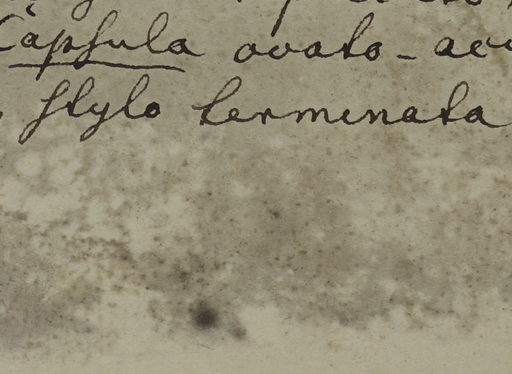 Càpsula ovato-acu
stylo terminata